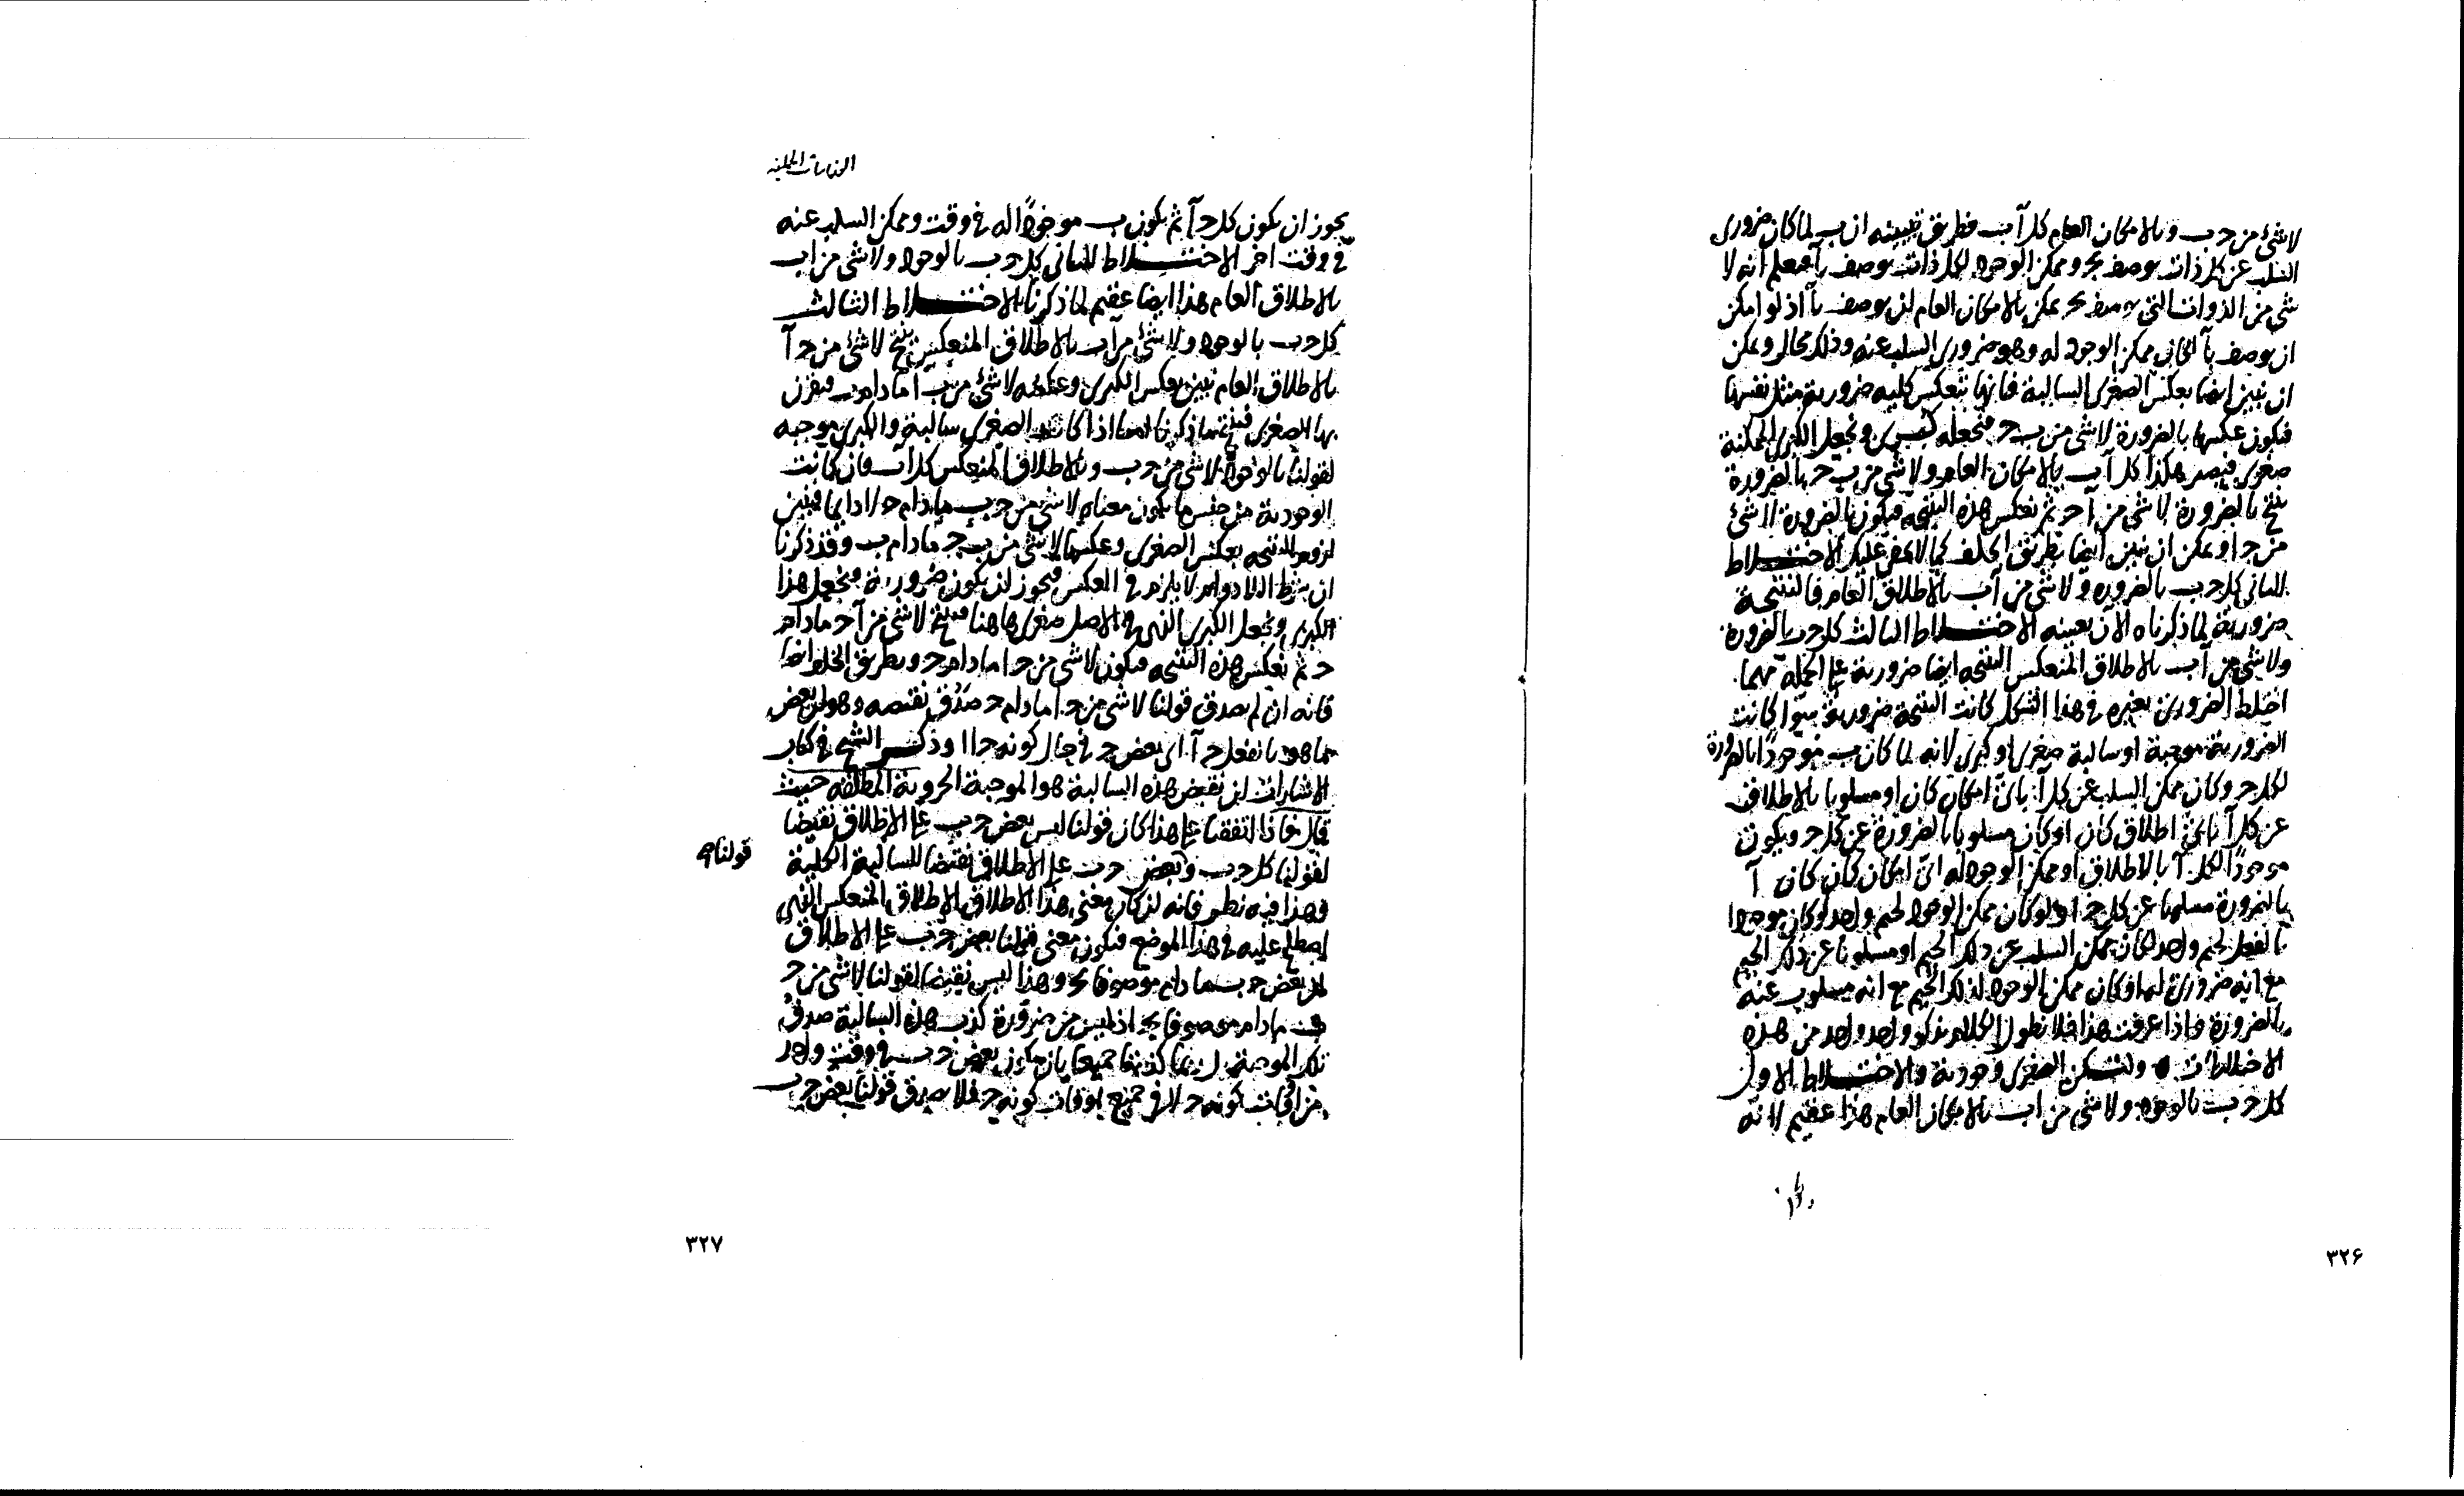 لاشئ من ج ب وبالامكان العام كل آ ب فطريق تبيينه ان ب لما كان ضرورى
السلب عن كل ذات يوصف بج وممكن الوجود لكل ذات يوصف بآ فيعلم انه لا
شئ من الذوات التى يوصف بج يمكن بالامكان العام ان يوصف بآ اذ لو امكن
ان يوصف بآ لكان ممكن الوجود له وهو ضرورى السلب عنه وذلك محال ويمكن
ان نبين ايضا بعكس الصغرى السالبة فانها تنعكس كلية ضرورية مثل نفسها
فيكون عكسها بالضرورة لا شئ من ب ج فنجعله كبرى ونجعل الكبرى الممكنة
صغرى فيصير هكذا كل آ ب بالامكان العام ولا شئ من ب ج بالضرورة
ينتج بالضرورة لا شئ من آ ج ثم نعكس هذه النتيجه فيكون بالضرورة لا شئ
من ج ا ويمكن ان نبين ايضا بطريق الخلف كما لا يخفى عليك الاختلاط
الثانى كل ج ب بالضرورة ولا شئ من آ ب بالاطلاق العام فالنتيجة
ضرورية لما ذكرناه الآن بعينه الاختلاط الثالث كل ج ب بالضرورة
ولا شئ من آ ب بالاطلاق المنعكس النتيجه ايضا ضرورية على الجملة مهما
اختلط الضرورى بغيره فى هذا الشكل كانت النتيجة ضرورية سوا كانت
الضرورية موجبة او سالبة صغرى او كبرى لانه لما كان ب موجودا بالضرورة
لكل ج وكان ممكن السلب عن كل آ باى امكان كان او مسلوبا بالاطلاق
عن كل آ باى اطلاق كان او كان مسلوبا بالضرورة عن كل ج ويكون
موجودا لكل آ بالاطلاق او ممكن الوجود له اى امكان كان كان آ
بالضرورة مسلوبا عن كل ج اذ لو كان ممكن الوجود لجيم واحد او كان موجودا
بالفعل لجيم واحد لكان ممكن السلب عن ذلك الجيم او مسلوبا عن ذلك الجيم
مع انه ضرورى له او كان ممكن الوجود لذلك الجيم مع انه مسلوب عنه
بالضرورة واذا عرفت هذا فلا نطول الكلام بذكر واحد واحد من هذه
الاختلاطات ولتكن الصغرى وجودية والاختلاط الاول
كل ج ب بالوجود ولا شئ من ا ب بالامكان العام هذا عقيم لانه
٣٢۶
القياسات الحملية
يجوز ان يكون كل ج آ ثم يكون ب موجودا له فى وقت وممكن السلب عنه
فى وقت اخر الاختلاط الثانى كل ج ب بالوجود ولا شئ من ا ب
بالاطلاق العام هذا ايضا عقيم لما ذكرنا الاختلاط الثالث
كل ج ب بالوجود ولا شئ من آ ب بالاطلاق المنعكس ينتج لا شئ من ج آ
بالاطلاق العام نبين بعكس الكبرى وعكسه لا شئ من ب آ ما دام ب فيقرن
بها الصغرى فينتج ما ذكرنا اما اذا كانت الصغرى سالبة والكبرى موجبه
كقولنا بالوجود لا شئ من ج ب وبالاطلاق المنعكس كل آ ب فان كانت
الوجودية من جنس ما يكون معناه لا شئ من ج ب ما دام ج لا دايما فيتبين
لزوم النتيجه بعكس الصغرى وعكسها لا شئ من ب ج ما دام ب وقد ذكرنا
ان شرط اللادوام لا يلزم فى العكس فيجوز ان يكون ضرورية ونجعل هذا
الكبرى ونجعل الكبرى التى فى الاصل صغرى هاهنا فينتج لا شئ من آ ج ما دام
ج ثم نعكس هذه النتيجه فيكون لا شئ من ج ا ما دام ج وبطريق الخلف ايضا
فانه ان لم يصدق قولنا لا شئ من ج ا ما دام ج صدق نقيضه وهو ان بعض
ما هو بالفعل ج آ اى بعض ج فى حال كونه ج ا وذكر الشيخ فى كتاب
الاشارات ان نقيض هذه السالبة هو الموجبة الجزوية المطلقه حيث
قال فاذا اتفقنا على هذا كان قولنا ليس بعض ج ب على الاطلاق نقيضا
لقولنا كل ج ب وبعض ج ب على الاطلاق نقيضا للسالبة الكلية
قولنا
وهذا فيه نظر فانه ان كان معنى هذا الاطلاق الاطلاق المنعكس الذى
اصطلح عليه فى هذا الموضع فيكون معنى قولنا بعض ج ب على الاطلاق
ان بعض ج ب ما دام موصوفا بج وهذا ليس نقيضا لقولنا لا شئ من ج
ب ما دام موصوفا بج اذ ليس من ضرورة كذب هذه السالبة صدق
تلك الموجبة بل ربما كذبتا جميعا بان يكون بعض ج ب فى وقت واحد
من اوقات كونه ج لا فى جميع اوقات كونه ج فلا يصدق قولنا بعض ج ب
٣٢٧